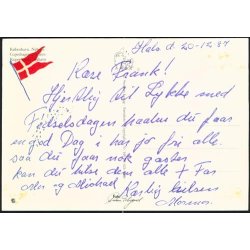 Hels d. 20-12.84
København, Ny
Kære Frank!
Hjertelig til Lykke med
Fødselsdagen haaber du faar
en god Dag i har jo fri alle.
saa du faar nok gæster
kan du hilse dem alle + Far
og Michael Kærlig hilsen
Mormor.